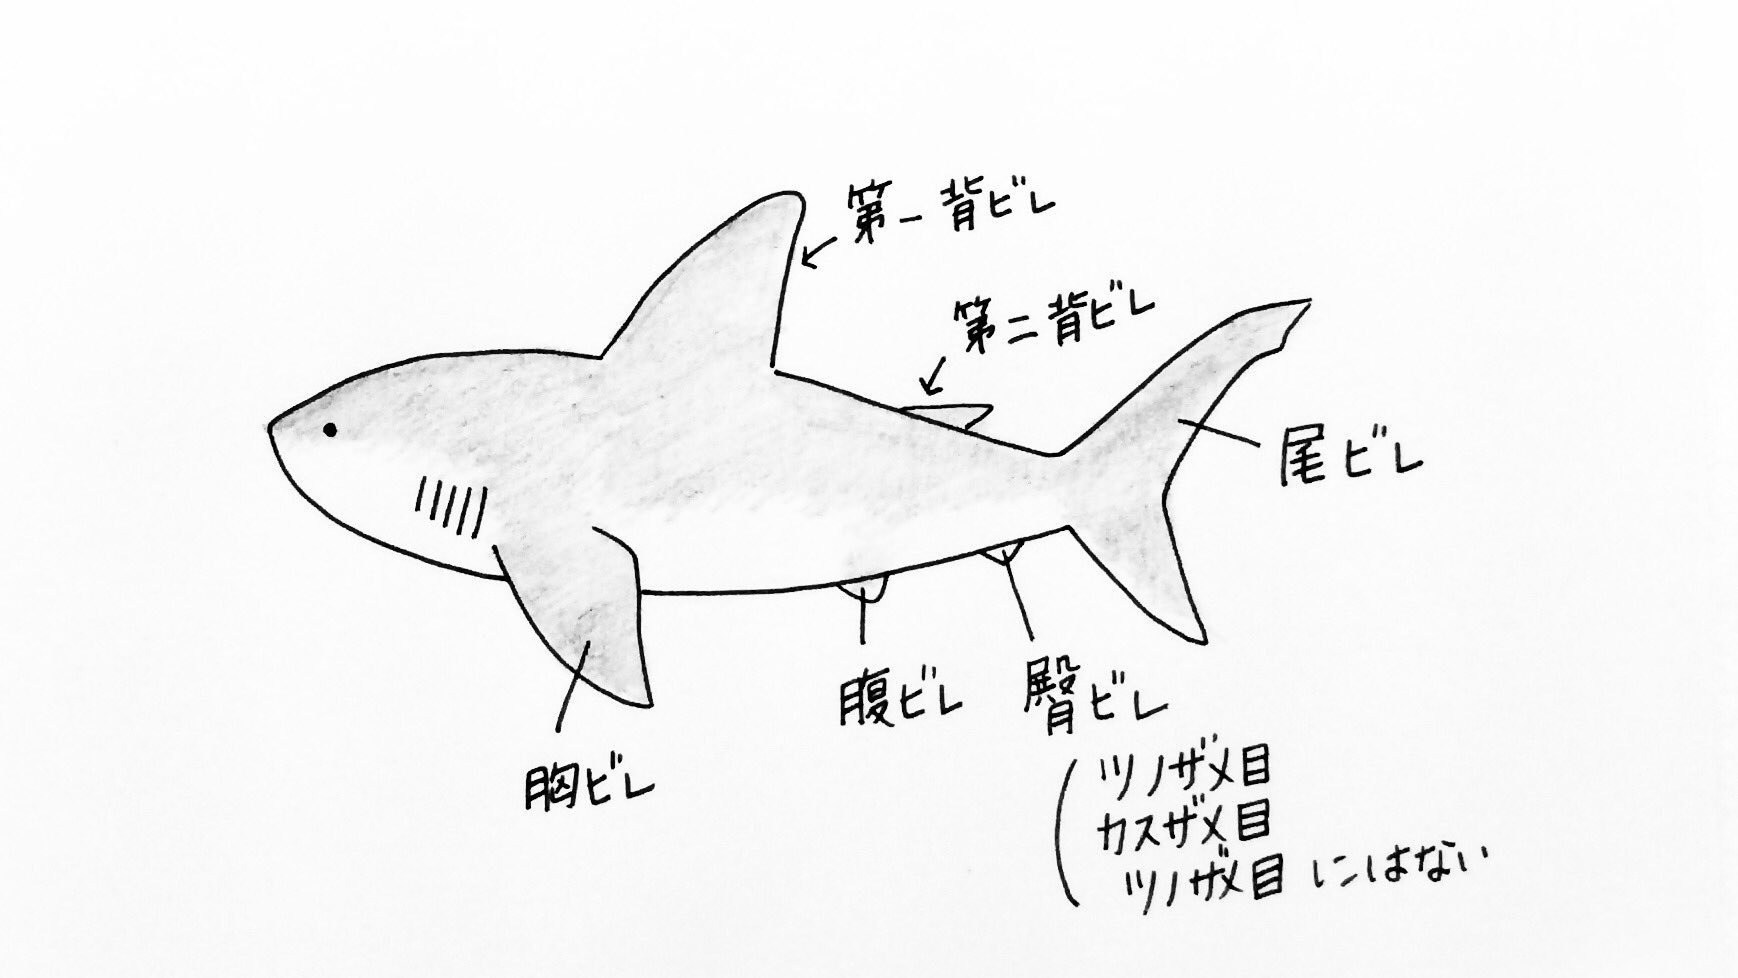 第一背ビレ
第二背ビレ
尾ビレ
腹ビレ
臀ビレ
胸ビレ
(ツノザメ目
カスザメ目
ツノザメ目にはない